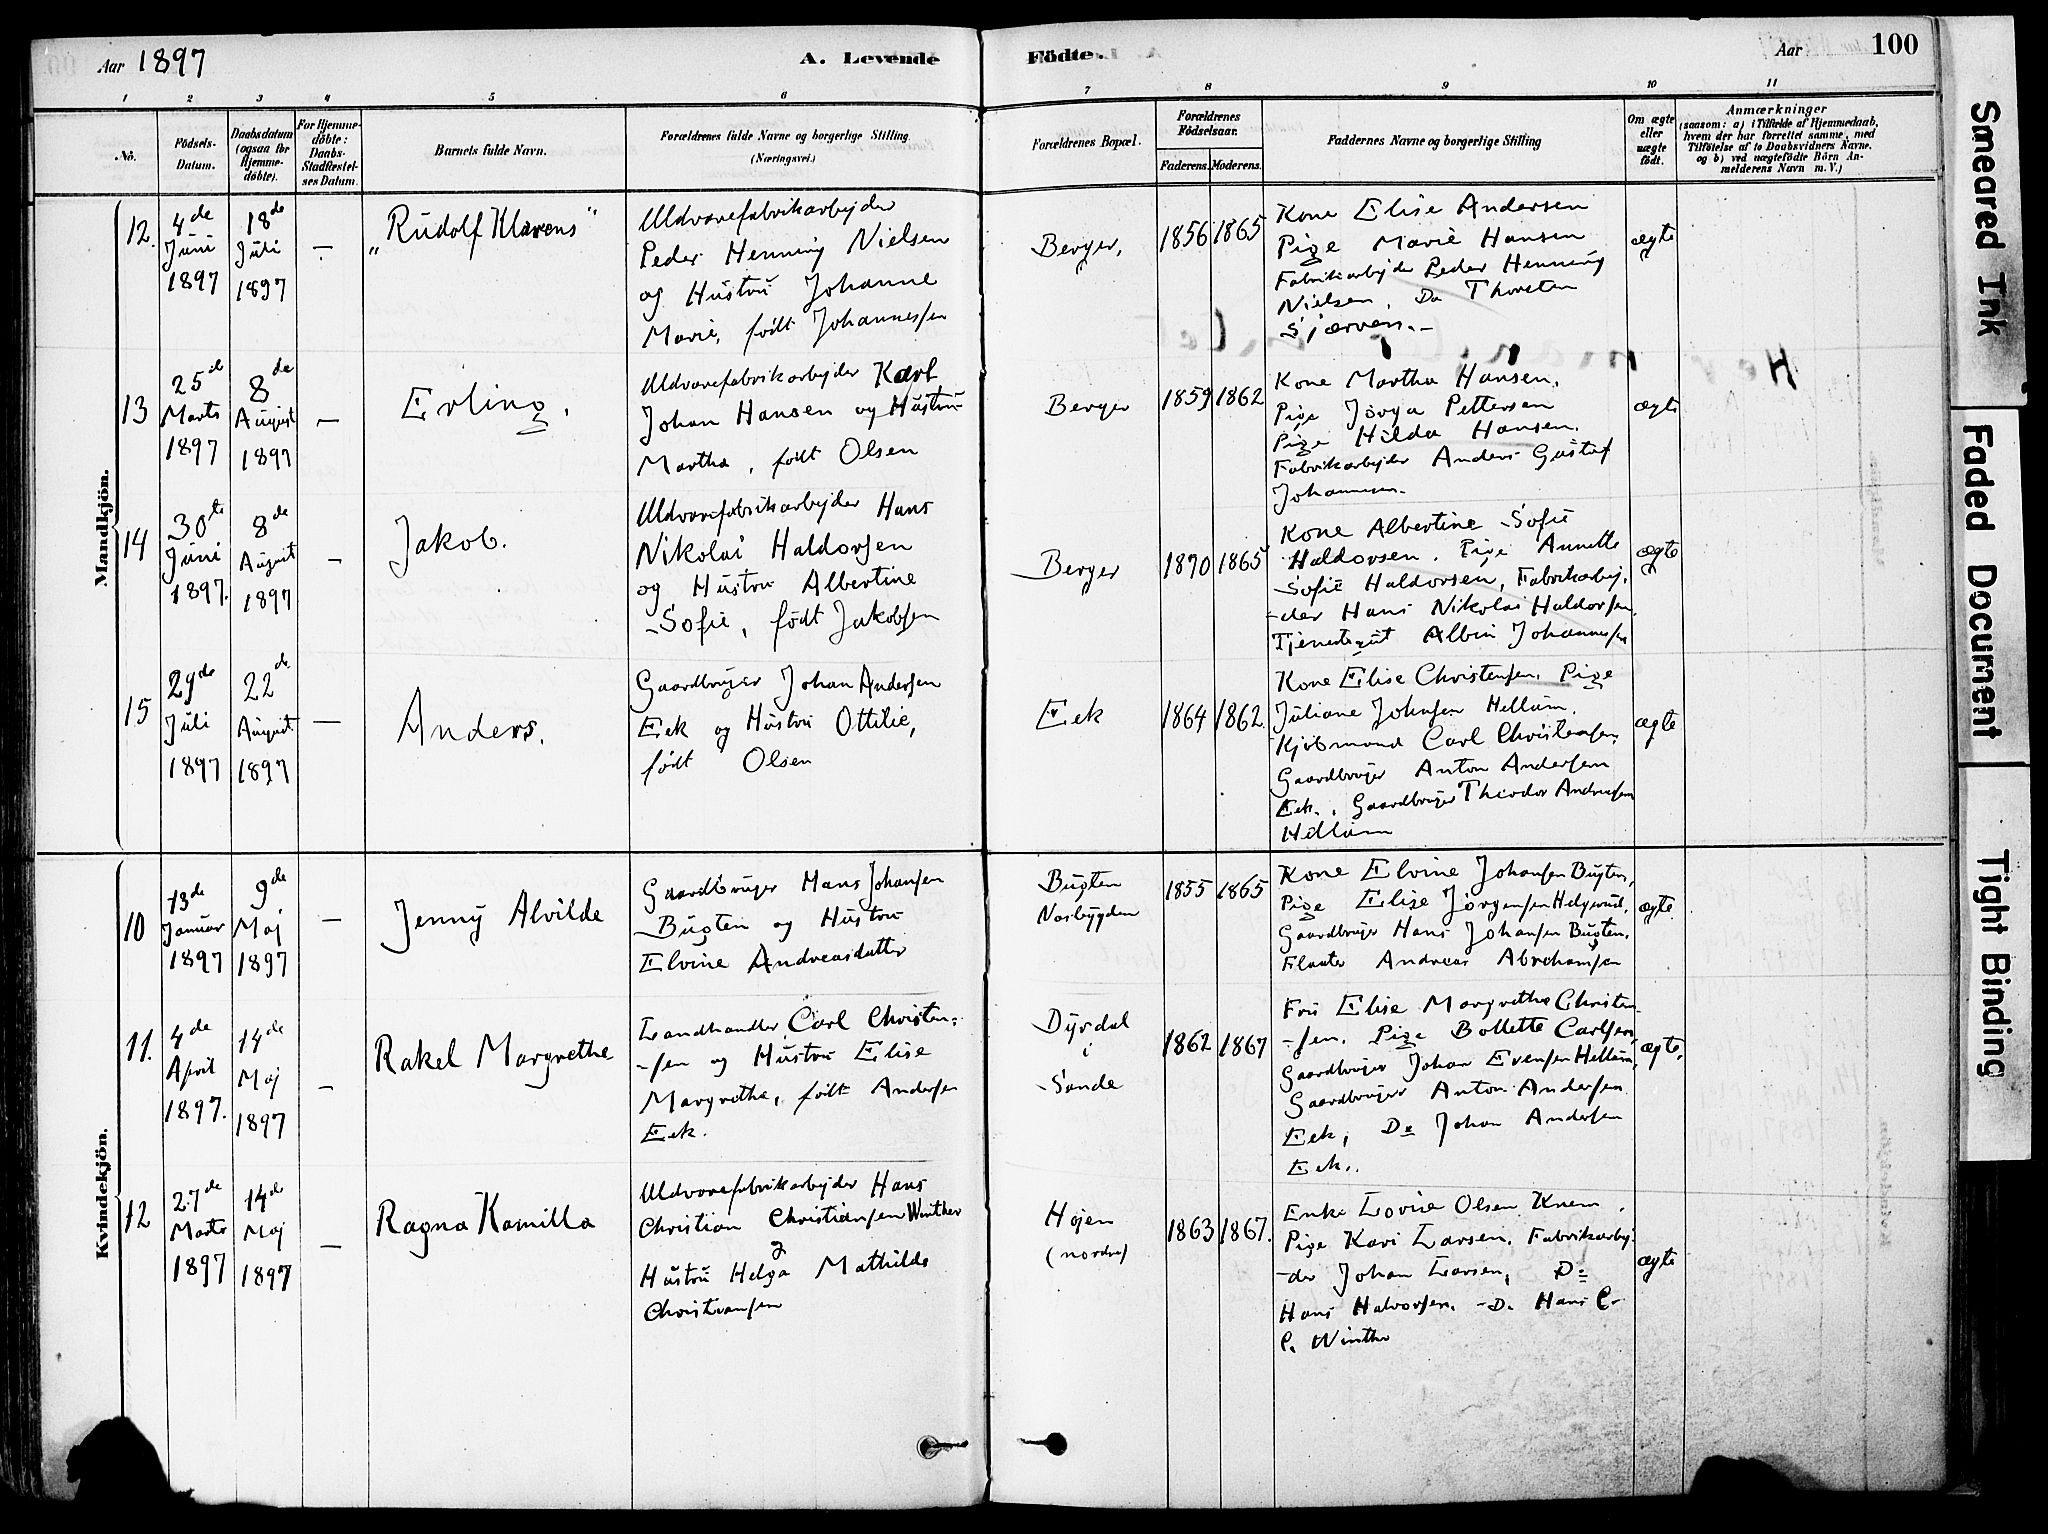 Aar 1897
A. Levende
Födte.
Aar
100
1 2 3 4 5 6 7 8 9 10 11
No.
Födsels-
Datum.
Daabsdatum
(ogsaa for
Hjemme-
döbte).
For Hjemme-
döbte:
Daabs-
Stadfæstel-
ses Datum.
Barnets fulde Navn.
Forældrenes fulde Navne og borgerlige Stilling.
(Næringsvei.)
Forældrenes Bopæl.
Forældrenes
Födselsaar.
Faderens.
Moderens.
Faddernes Navne og borgerlige Stilling
Om ægte
eller
uægte
födt.
Anmærkninger
(saasom: a) i Tilfælde af Hjemmedaab,
hvem der har forrettet samme, med
Tilföielse af to Daabsvidners Navne,
og b) ved uægtefödte Börn An-
melderens Navn m. V.)
Mandkjön.
12.
4de
Juni
1897
18de
Juli
1897
—
"Rudolf Klarens"
Uldvarefabrikarbejder
Peder Henning Nielsen
og Hustru Johanne
Marie, født Johannessen
Berger,
1856
1865
Kone Elise Andersen
Pige Marie Hansen
Fabrikarbejder Peder Henning
Nielsen, Do Thorsten
ægte
13
25de
Marts
1897
8de
August
1897
—
Erling.
Uldvarefabrikarbejder Karl
Johan Hansen og Hustru
Martha, født Olsen
Berger
1859
1862
Kone Martha Hansen.
Pige Pettersen
Pige Hilda Hansen.
Fabrikarbejder Anders Gustaf
Johannesen.
ægte
14
30te
Juni
1897.
8de
August
1897
—
Jakob.
Uldvarefabrikarbejder Hans
Nikolai Haldorsen
og Hustru Albertine
Sofie, født Jakobsen
Berger
1870
1865
Kone Albertine Sofie
Haldorsen. Pige Annette
Sofie Haldorsen, Fabrikarbej-
der Hans Nikolai Haldorsen.
Tjenestegut Albin Johannessen
ægte
15
29de
Juli
1897
22de
August
1897
—
Anders.
Gaardbruger Johan Andersen
Eek og Hustru Ottilie,
født Olsen
Eek
1864
1862.
Kone Elise Christensen, Pige
Juliane Johnsen Hellum.
Kjøbmand Carl Christensen,
Gaardbruger Anton Andersen
Eek, Gaardbruger Theodor Andresen
Hellum
ægte
Kvindekjön.
10
13de
Januar
1897
9de
Maj
1897
—
Jenny Alvilde
Gaardbruger Hans Johansen
Bugten og Hustru
Elvine Andreasdatter
Bugten
Nesbygden
1855
1865
Kone Elvine Johansen Bugten,
Pige Elise Jørgensen Helgerud.
Gaardbruger Hans Johansen Bugten.
Fløater Andreas Abrahamsen
ægte.
11.
4de
April
1897.
14de
Maj
1897
—
Rakel Margrethe
Landhandler Carl Christen-
sen og Hustru Elise
Margrethe, født Andersen
Eek.
Dyrdal
i
Sande
1862
1867
Fru Elise Margrethe Christen-
sen. Pige Bollette Carlsen,
Gaardbruger Johan Evensen Hellum,
Gaardbruger Anton Andersen
Eek, Do Johan Andersen
Eek.
ægte.
12
27de
Marts
1897
14de
Maj
1897
—
Ragna Kamilla
Uldvarefabrikarbejder Hans
Christian Christiansen Winther
og
Hustru Helga Mathilde
Christiansen
Højen
(nordre)
1863
1867.
Enke Lovise Olsen Knem.
Pige Kari Larsen. Fabrikarbej-
der Johan Larsen, Do
Hans Halvorsen. Do Hans C.
C. Winther
ægte
Smeared Ink
Faded Document
Tight Binding